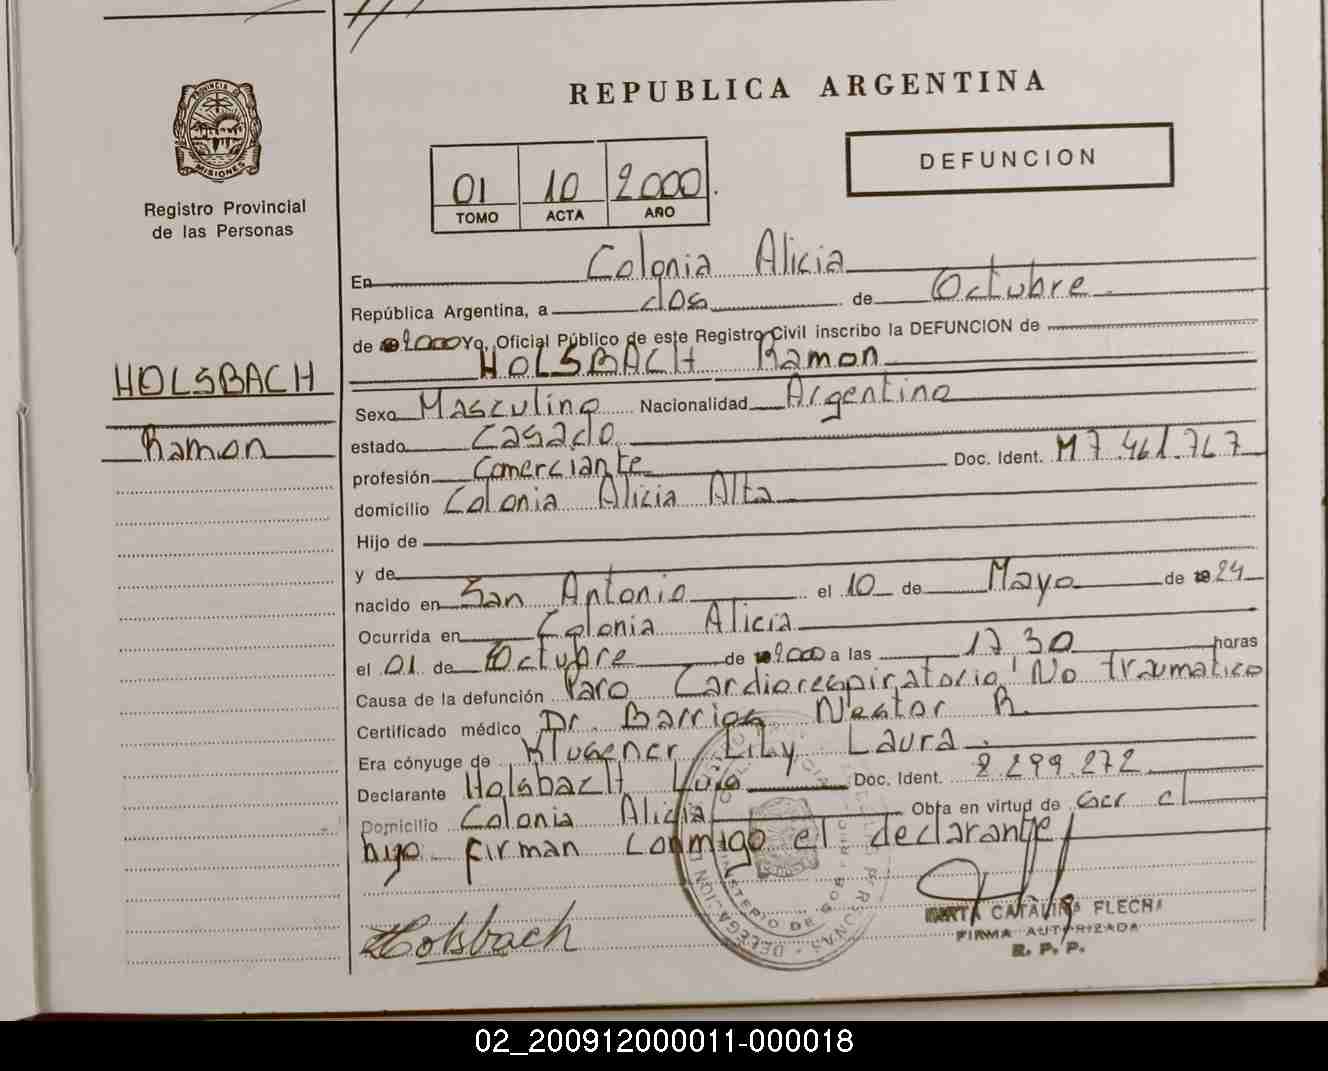 REPUBLICA ARGENTINA
DEFUNCION
01 10 2000.
TOMO ACTA AÑO
PROVINCIA DE MISIONES
Registro Provincial
de las Personas
HOLSBACH
Ramon
En Colonia Alicia
República Argentina, a dos de Octubre
de 2000 Yo, Oficial Público de este Registro Civil inscribo la DEFUNCION de
HOLSBACH Ramon
Sexo Masculino Nacionalidad Argentino
estado Casado
profesión Comerciante Doc. Ident. M 7.461.767
domicilio Colonia Alicia Alta
Hijo de
y de
nacido en San Antonio el 10 de Mayo de 1924
Ocurrida en Colonia Alicia
el 01 de Octubre de 2000 a las 17,30 horas
Causa de la defunción Paro Cardiorespiratorio No traumatico
Certificado médico Dr. Barrios Nestor R.
Era cónyuge de Klugener Lily Laura.
Declarante Holsbach Luis Doc. Ident. 8299.272
Domicilio Colonia Alicia Obra en virtud de ser el
hijo firman conmigo el declarante
Holsbach
CATALINA FLECHA
FIRMA AUTORIZADA
R. P. P.
02_200912000011-000018